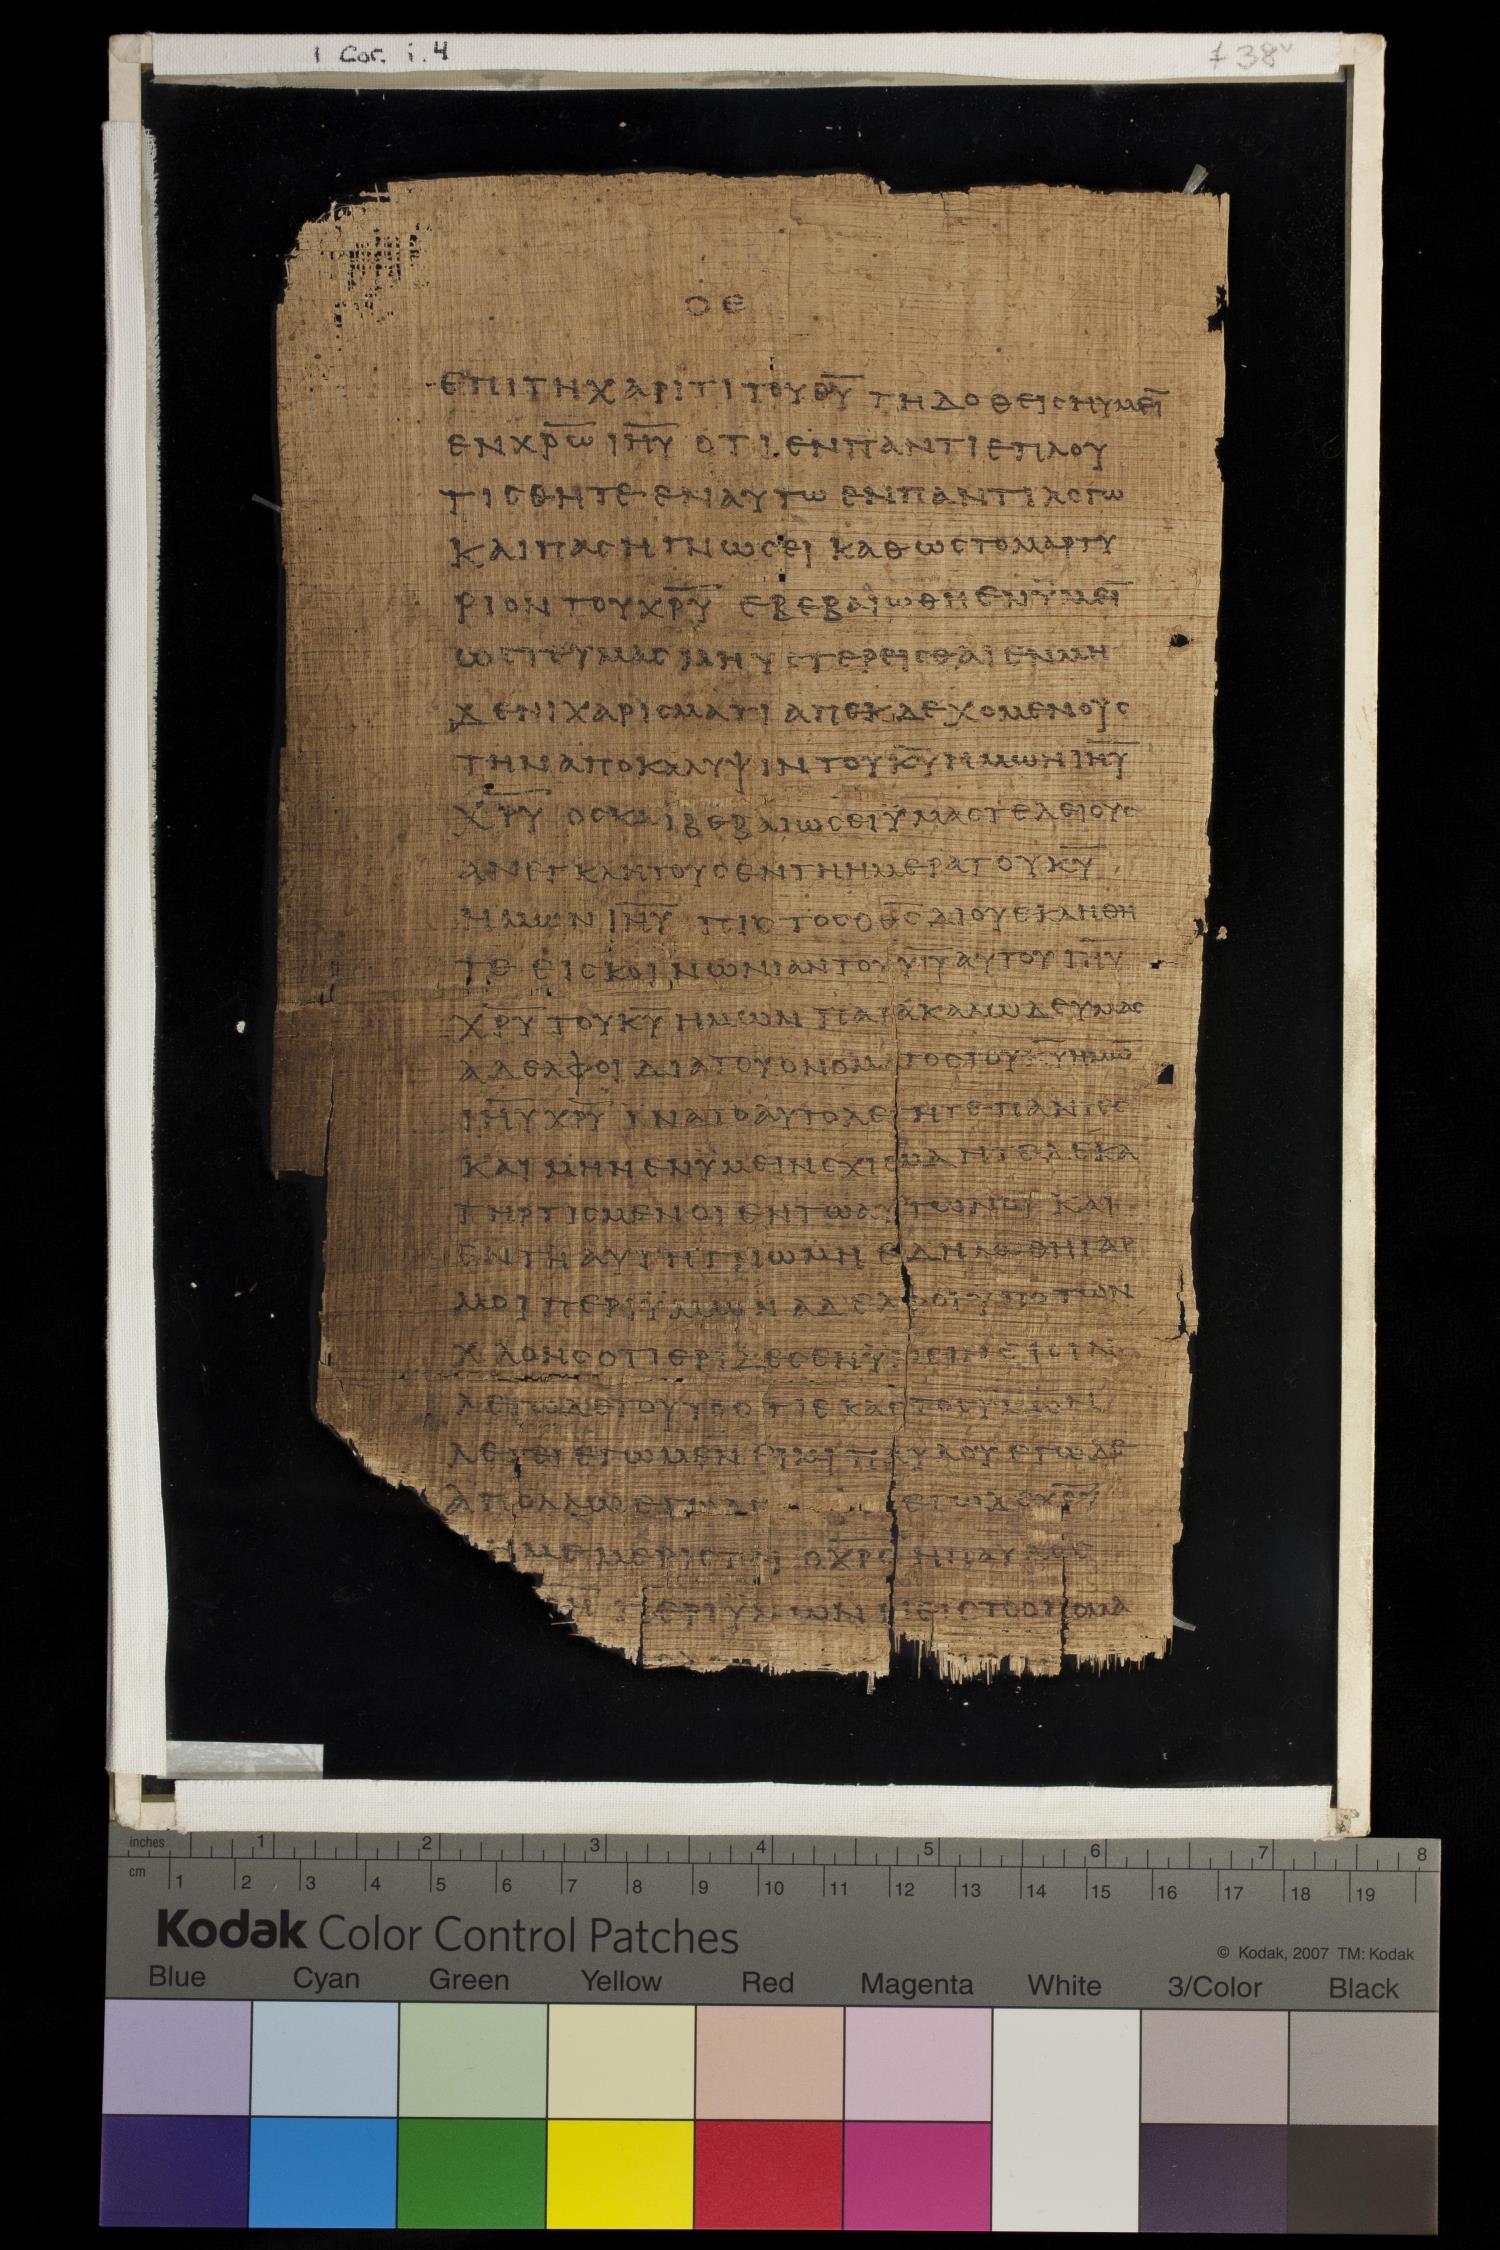 1 Cor. i. 4
f 38v
ΟΕ
ΕΠΙΤΗΧΑΡΙΤΙΤΟΥΘ̅Υ̅ΤΗΔΟΘΕΙСΗΥΜΕΙ̅
ΕΝΧ̅Ρ̅Ω̅ Ι̅Η̅Υ̅ ΟΤΙΕΝΠΑΝΤΙΕΠΛΟΥ
ΤΙСΘΗΤΕΕΝΑΥΤΩ ΕΝΠΑΝΤΙΛΟΓΩ
ΚΑΙΠΑСΗΓΝΩСΕΙ ΚΑΘΩСΤΟΜΑΡΤΥ
ΡΙΟΝΤΟΥΧ̅Ρ̅Υ̅ ΕΒΕΒΑΙΩΘΗΕΝΫΜΕΙ̅
ΩСΤΕΥΜΑСΜΗΥСΤΕΡΕΙСΘΑΙΕΝΜΗ
ΔΕΝΙΧΑΡΙСΜΑΤΙ ΑΠΕΚΔΕΧΟΜΕΝΟΥС
ΤΗΝΑΠΟΚΑΛΥΨΙΝΤΟΥΚ̅Υ̅ΗΜΩΝΙ̅Η̅Υ̅
Χ̅Ρ̅Υ̅ ΟСΚΑΙΒΕΒΑΙΩСΕΙΫΜΑСΤΕΛΕΙΟΥС
ΑΝΕΓΚΛΗΤΟΥСΕΝΤΗΗΜΕΡΑΤΟΥΚ̅Υ̅
ΗΜΩΝΙ̅Η̅Υ̅ ΠΙСΤΟСΟΘ̅С̅ΔΙΟΥΕΚΛΗΘΗ
ΤΕ ΕΙСΚΟΙΝΩΝΙΑΝΤΟΥΥ̅Ι̅Υ̅ΑΥΤΟΥΙ̅Η̅Υ̅
Χ̅Ρ̅Υ̅ΤΟΥΚ̅Υ̅ΗΜΩΝ ΠΑΡΑΚΑΛΩΔΕΥΜΑС
ΑΔΕΛΦΟΙΔΙΑΤΟΥΟΝΟΜΑΤΟСΤΟΥΚ̅Υ̅ΗΜΩ̅
Ι̅Η̅Υ̅Χ̅Ρ̅Υ̅ ΪΝΑΤΟΑΥΤΟΛΕΓΗΤΕΠΑΝΤΕС
ΚΑΙΜΗΗΕΝΫΜΕΙΝСΧΙСΜΑΗΤΕΔΕΚΑ
ΤΗΡΤΙСΜΕΝΟΙΕΝΤΩΑΥΤΩΝΟΙ ΚΑΙ
ΕΝΤΗΑΥΤΗΓΝΩΜΗ ΕΔΗΛΩΘΗΓΑΡ
ΜΟΙΠΕΡΙΫΜΩΝΑΔΕΛΦΟΙΫΠΟΤΩΝ
ΧΛΟΗСΟΤΙΕΡΙΔΕСΕΝΫΜΕΙΝΕΙСΙΝ
ΛΕΓΩΔΕΤΟΥΤΟΟΤΙΕΚΑСΤΟСΥΜΩΝ
ΛΕΓΕΙΕΓΩΜΕΝΕΙΜΙΠΑΥΛΟΥΕΓΩΔΕ
ΑΠΟΛΛΩΕΓΩΔΕ ΕΓΩΔΕΧ̅Ρ̅Υ̅
ΜΕΜΕΡΙСΤΑΙ ΟΧ̅Ρ̅С̅ ΗΠΑΥΛΟС
ΠΕΡΙΫΜΩΝΗΕΙСΤΟΟΝΟΜΑ
inches 1 2 3 4 5 6 7 8
cm 1 2 3 4 5 6 7 8 9 10 11 12 13 14 15 16 17 18 19
Kodak Color Control Patches
© Kodak, 2007 TM: Kodak
Blue Cyan Green Yellow Red Magenta White 3/Color Black